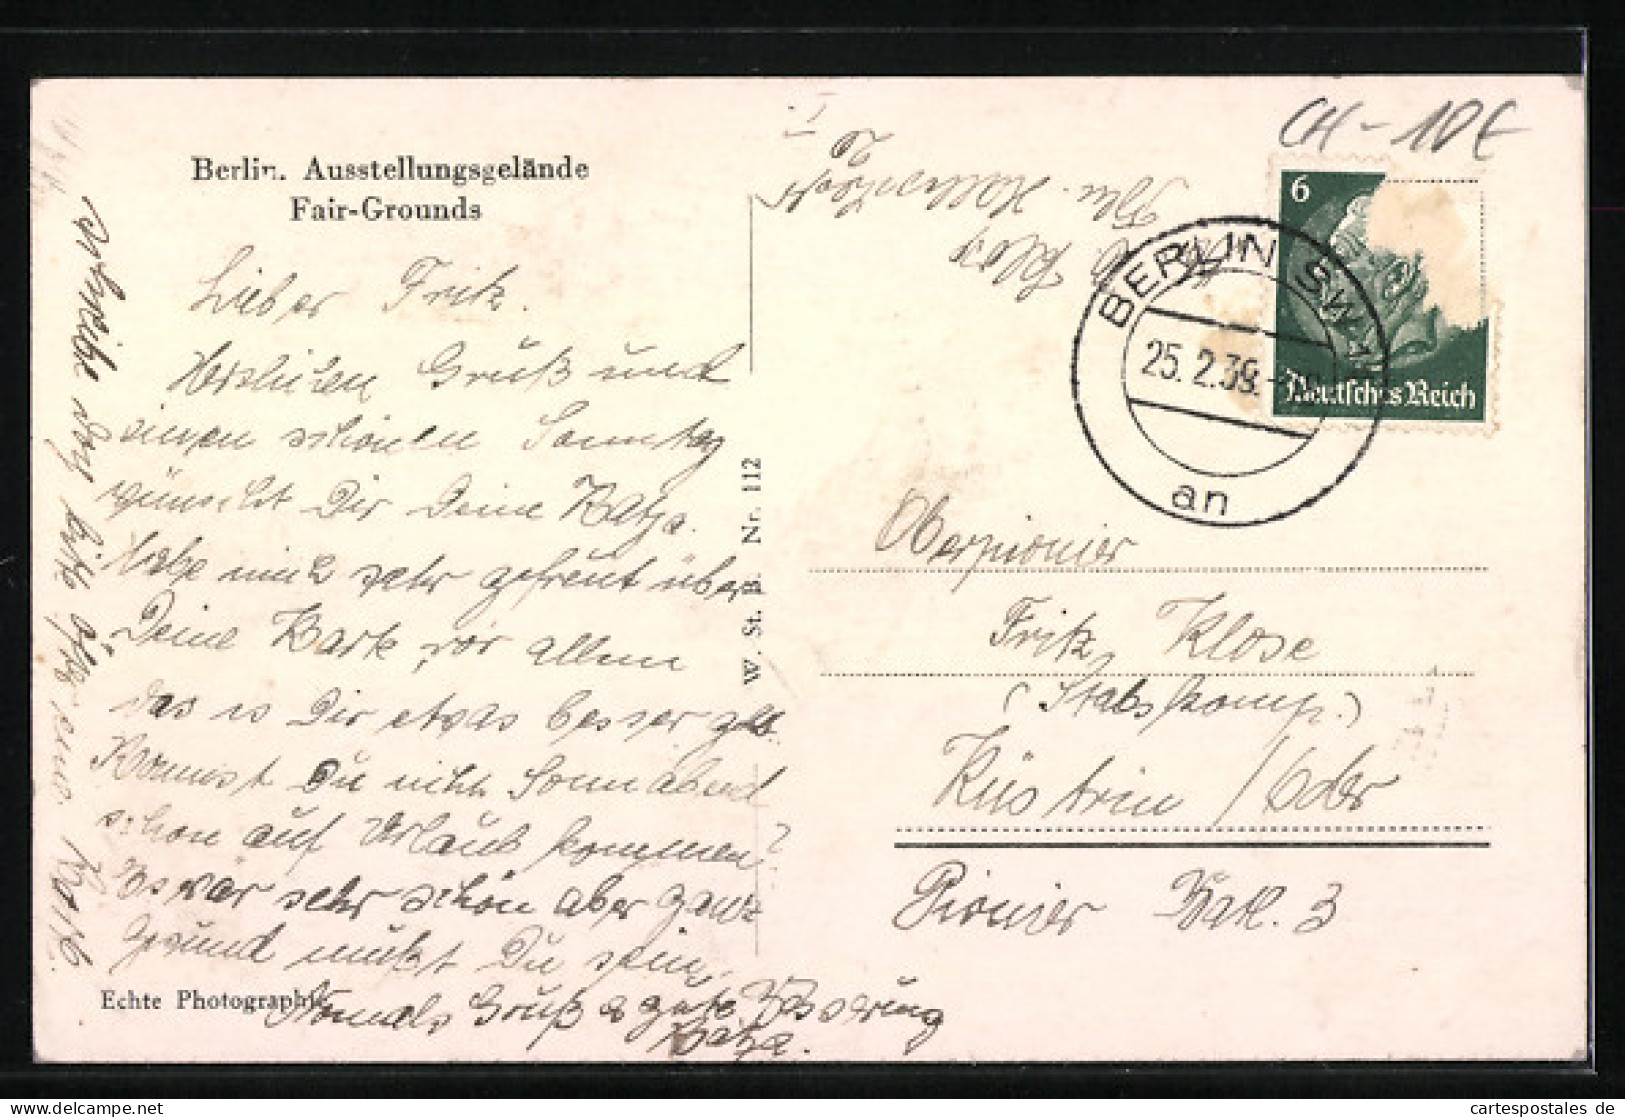 Berlin. Ausstellungsgelände
Fair-Grounds
Lieber Fritz.
Herzlichen Gruß und
einen schönen Sonntag
wünscht Dir Deine Katze.
Habe mich sehr gefreut über
Deine Karte, vor allem
das es Dir etwas besser geht.
Kommst Du nicht Sonnabend
schon auf Urlaub kommen?
Es wär sehr schön aber ganz
gesund mußt Du sein.
Nomals Gruß & gute Besserung
Katze.
Schreibe noch bitte öfter eine Karte.
Echte Photographie
W. St. B. Nr. 112
Abs. Klose
Bln.
CH - 10€
6
Deutsches Reich
BERLIN SW 11
25.2.39.
an
Oberpionier
Fritz Klose
(Stabskomp.)
Küstrin / Oder
Pionier Batl. 3
cartespostales de